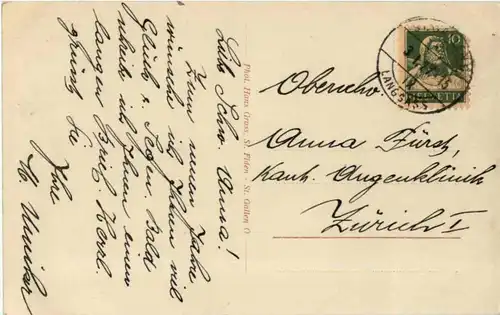 Lb. Schw. Anna!
Zum neuen Jahre
wünsche ich Ihnen viel
Glück & Segen. Bald
schreib ich Ihnen einen
langen Brief. Herzl.
grüsst Sie
Ihre
Phot. Hans Gross, St. Fiden - St. Gallen O
10
HELVETIA
LANGG
Oberschw.
Anna Fürst,
Kant. Augenklinik
Zürich I